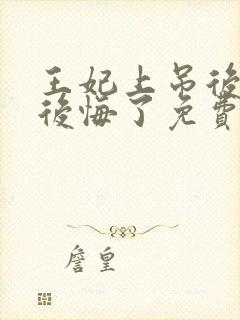 王妃上吊後
後悔了免費
詹皇